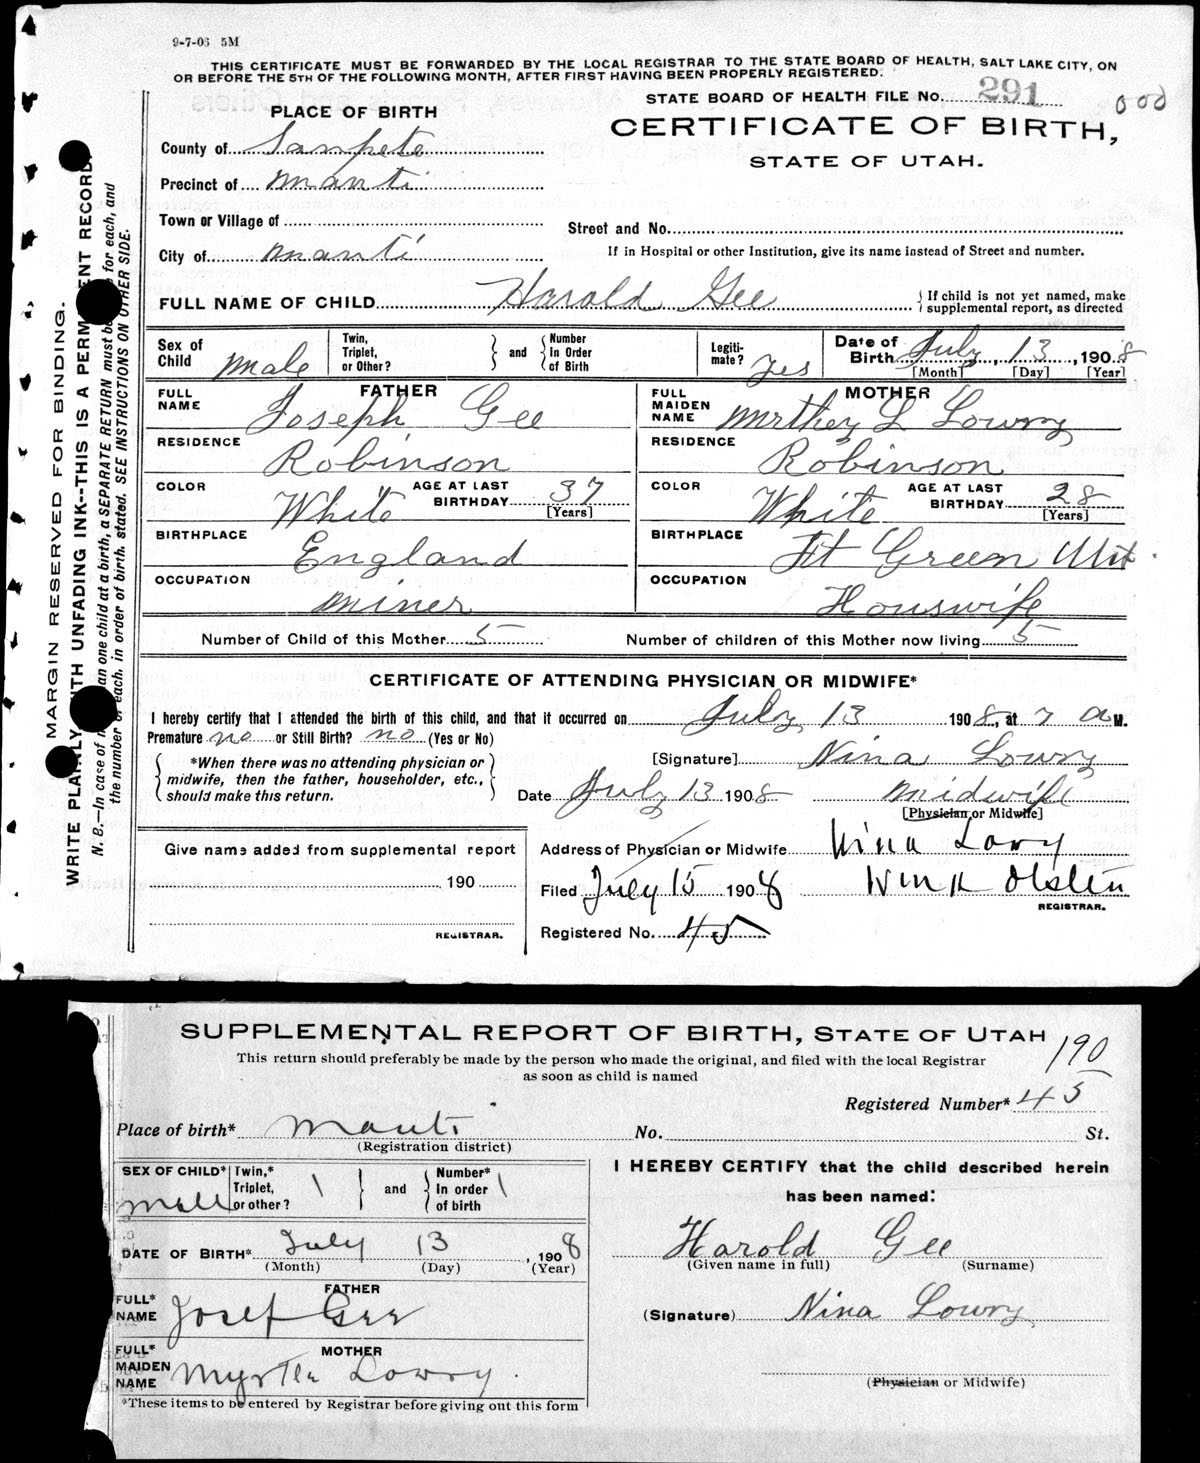 9-7-06 5M
THIS CERTIFICATE MUST BE FORWARDED BY THE LOCAL REGISTRAR TO THE STATE BOARD OF HEALTH, SALT LAKE CITY, ON
OR BEFORE THE 5TH OF THE FOLLOWING MONTH, AFTER FIRST HAVING BEEN PROPERLY REGISTERED.
STATE BOARD OF HEALTH FILE No. 291
000
CERTIFICATE OF BIRTH,
STATE OF UTAH.
PLACE OF BIRTH
County of Sanpete
Precinct of Manti
Town or Village of
City of Manti
Street and No.
If in Hospital or other Institution, give its name instead of Street and number.
FULL NAME OF CHILD Harold Gee
If child is not yet named, make
supplemental report, as directed
Sex of Child Male
Twin, Triplet, or Other?
and
Number In Order of Birth
Legiti-mate? Yes
Date of Birth July, 13, 1908
[Month] [Day] [Year]
FATHER
FULL NAME Joseph Gee
RESIDENCE Robinson
COLOR White
AGE AT LAST BIRTHDAY 37
[Years]
BIRTHPLACE England
OCCUPATION Miner
MOTHER
FULL MAIDEN NAME Mirthey L Lowry
RESIDENCE Robinson
COLOR White
AGE AT LAST BIRTHDAY 28
[Years]
BIRTHPLACE Ft Green Utt
OCCUPATION Houswife
Number of Child of this Mother 5
Number of children of this Mother now living 5
CERTIFICATE OF ATTENDING PHYSICIAN OR MIDWIFE*
I hereby certify that I attended the birth of this child, and that it occurred on July 13 1908, at 7 a M.
Premature no or Still Birth? no (Yes or No)
*When there was no attending physician or
midwife, then the father, householder, etc.,
should make this return.
[Signature] Nina Lowry
Date July 13 1908 Midwife
[Physician or Midwife]
Give name added from supplemental report
190
REGISTRAR.
Address of Physician or Midwife Nina Lowry
Filed July 15 1908 Wm H Olsten
REGISTRAR.
Registered No. 45
MARGIN RESERVED FOR BINDING.
WRITE PLAINLY WITH UNFADING INK--THIS IS A PERMANENT RECORD.
N. B.—In case of an one child at a birth, a SEPARATE RETURN must be for each, and
the number of each, in order of birth, stated. SEE INSTRUCTIONS ON OTHER SIDE.
SUPPLEMENTAL REPORT OF BIRTH, STATE OF UTAH
This return should preferably be made by the person who made the original, and filed with the local Registrar
as soon as child is named
190
Registered Number* 45
Place of birth* Manti
(Registration district)
No. St.
SEX OF CHILD* Male
Twin,* Triplet, or other? 1
and
Number* In order of birth 1
DATE OF BIRTH* July 13, 1908
(Month) (Day) (Year)
FATHER
FULL* NAME Josef Gee
MOTHER
FULL* MAIDEN NAME Myrtle Lowry.
*These items to be entered by Registrar before giving out this form
I HEREBY CERTIFY that the child described herein
has been named:
Harold Gee
(Given name in full) (Surname)
(Signature) Nina Lowry
(Physician or Midwife)